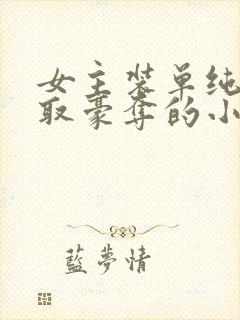 女主装单纯
取豪夺的小
蓝梦情